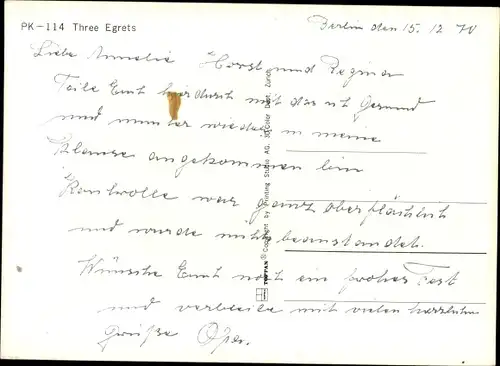 PK-114 Three Egrets
Berlin den 15. 12 70
Liebe Annelie Horst und Regina
Teile Euch hierdurch mit das ich Gesund
und munter wieder in meine
Klause angekommen bin
Kontrolle war ganz oberflächlich
und wurde nicht beanstandet.
Wünsche Euch noch ein frohes Fest
und verbleibe mit vielen herzlichen
Grüße Opa.
TOPPAN ® Copyright by Printing Studio AG. 3D Color Dept. Zurich